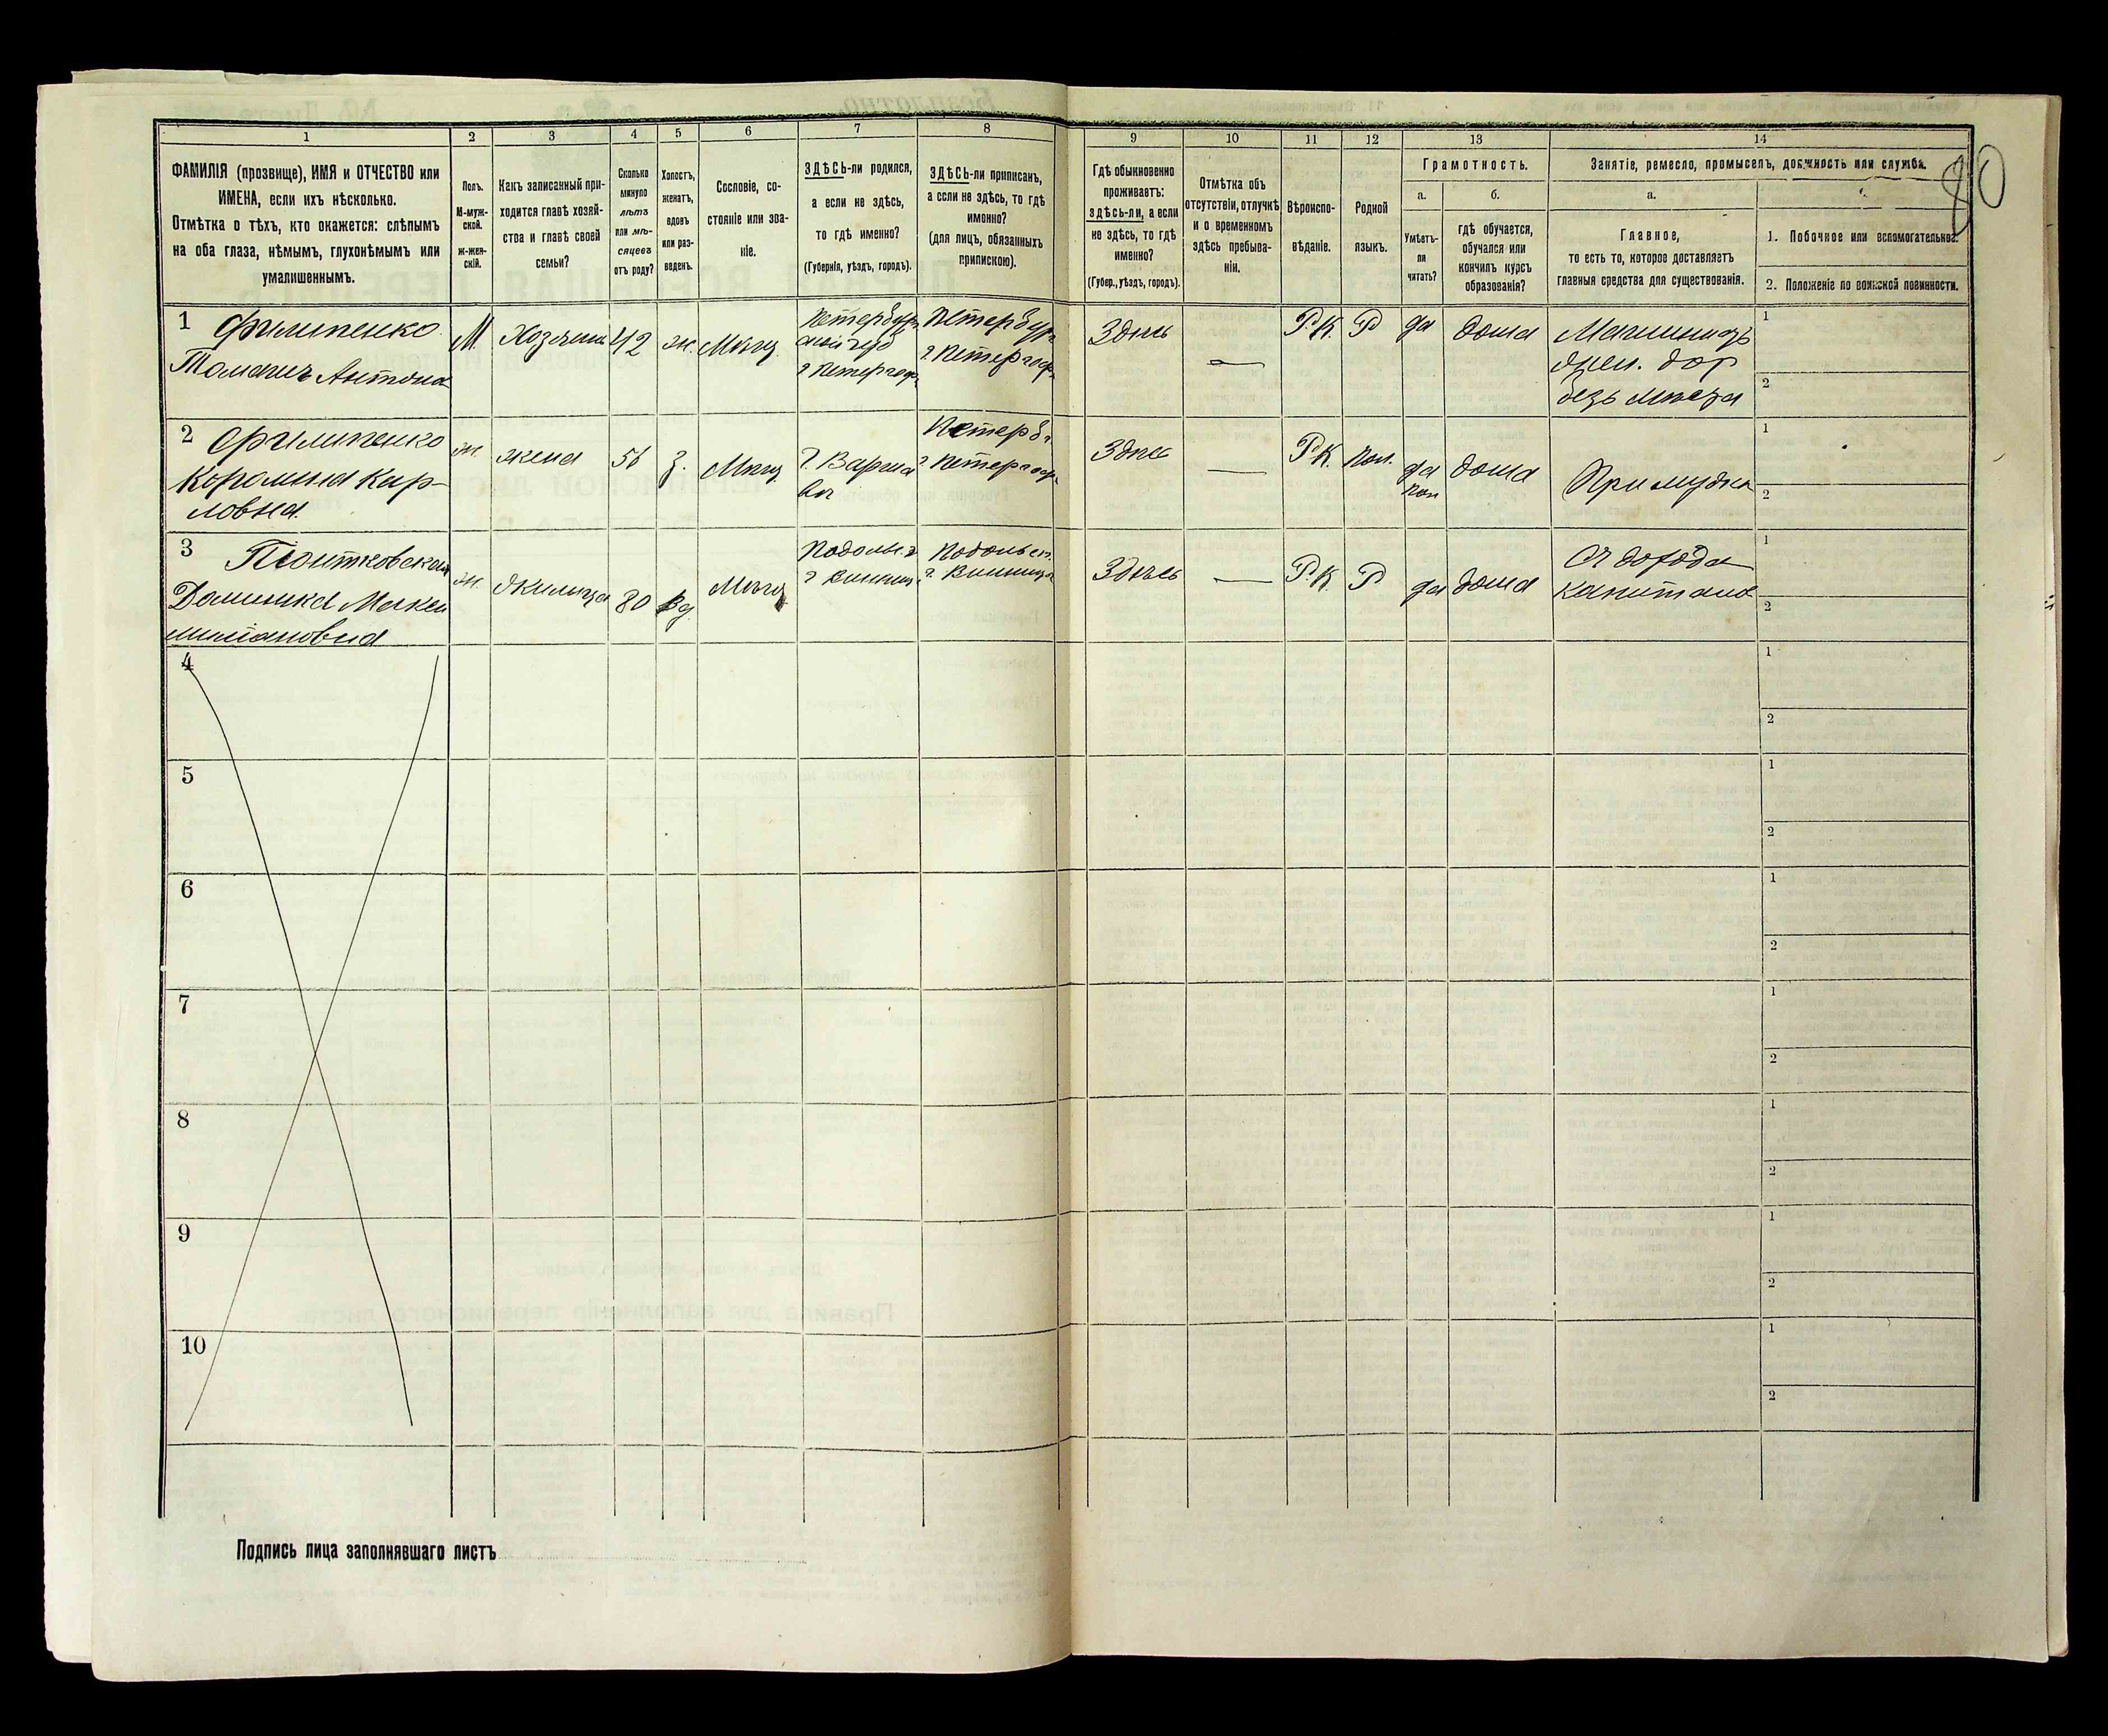 80
1 2 3 4 5 6 7 8 9 10 11 12 13 14
ФАМИЛІЯ (прозвище), ИМЯ и ОТЧЕСТВО или
ИМЕНА, если ихъ нѣсколько.
Отмѣтка о тѣхъ, кто окажется: слѣпымъ
на оба глаза, нѣмымъ, глухонѣмымъ или
умалишеннымъ.
Полъ.
М-муж-
ской.
ж-жен-
скій.
Какъ записанный при-
ходится главѣ хозяй-
ства и главѣ своей
семьи?
Сколько
минуло
лѣтъ
или мѣ-
сяцевъ
отъ роду?
Холостъ,
женатъ,
вдовъ
или раз-
веденъ.
Сословіе, со-
стояніе или зва-
ніе.
ЗДѢСЬ-ли родился,
а если не здѣсь,
то гдѣ именно?
(Губернія, уѣздъ, городъ).
ЗДѢСЬ-ли приписанъ,
а если не здѣсь, то гдѣ
именно?
(для лицъ, обязанныхъ
припискою).
Гдѣ обыкновенно
проживаетъ:
здѣсь-ли, а если
не здѣсь, то гдѣ
именно?
(Губер., уѣздъ, городъ).
Отмѣтка объ
отсутствіи, отлучкѣ
и о временномъ
здѣсь пребыва-
ніи.
Вѣроиспо-
вѣданіе.
Родной
языкъ.
Грамотность.
а.
Умѣетъ-
ли
читать?
б.
гдѣ обучается,
обучался или
кончилъ курсъ
образованія?
Занятіе, ремесло, промыселъ, должность или служба.
а.
Главное,
то есть то, которое доставляетъ
главныя средства для существованія.
1. Побочное или вспомогательное.
2. Положеніе по воинской повинности.
1 Филипенко
Антона
М.
Хозяинъ
42
ж.
Мѣщ.
Петербург
г Петергоф
Петербург
г Петергоф
Здѣсь
—
Р.К.
Р
да
дома
Машинистъ
дор
безъ мѣста
1
2
2 Филипенко
Каролина Кар-
ловна
ж.
жена
56
з.
Мѣщ
г. Варша
ва
Петерб г.
г Петергоф
Здѣсь
—
Р.К.
Пол.
да
пол
дома
При мужѣ
1
2
3 Піонтковская
Доминика Макси
миліановна
ж.
Жилица
80
вд
Мѣщ
Подольс. г
г Винниц
Подольск.
г. Винница
Здѣсь
—
Р.К.
Р
да
дома
Съ дохода
капитала
1
2
4
1
2
5
1
2
6
1
2
7
1
2
8
1
2
9
1
2
10
1
2
Подпись лица заполнявшаго листъ